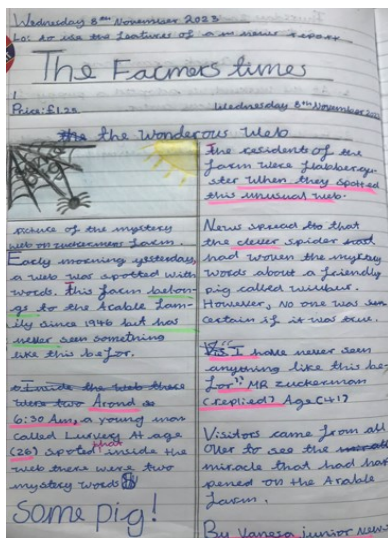 Wednesday 8th November 2023
Lo: to use the features of a news report
The Farmers times
Price: £1.25
Wednesday 8th November 202
the Wonderous Web
picture of the mystery
web on zuckermans farm.
Early morning yesterday,
a web was spotted with
words. This farm belon-
gs to the Arable Fam-
ily since 1946 but has
never seen something
like this befor.
Inside the web there
were two Arond
6:30 Am, a young man
called Lurvey At age
(26) spoted that inside the
web there were two
mystery words
Some pig!
The residents of the
farm were flabberga-
ster when they spotted
this unusual web.
News spread that
the clever spider
had woven the mystery
words about a friendly
pig called wilbur.
However, No one was
certain if it was true.
I have never seen
anything like this be-
for" MR zuckerman
(replied) Age (41)
Visitors came from all
Over to see the
miracle that had hap
pened on the Arable
farm.
By Vanesa junior New-